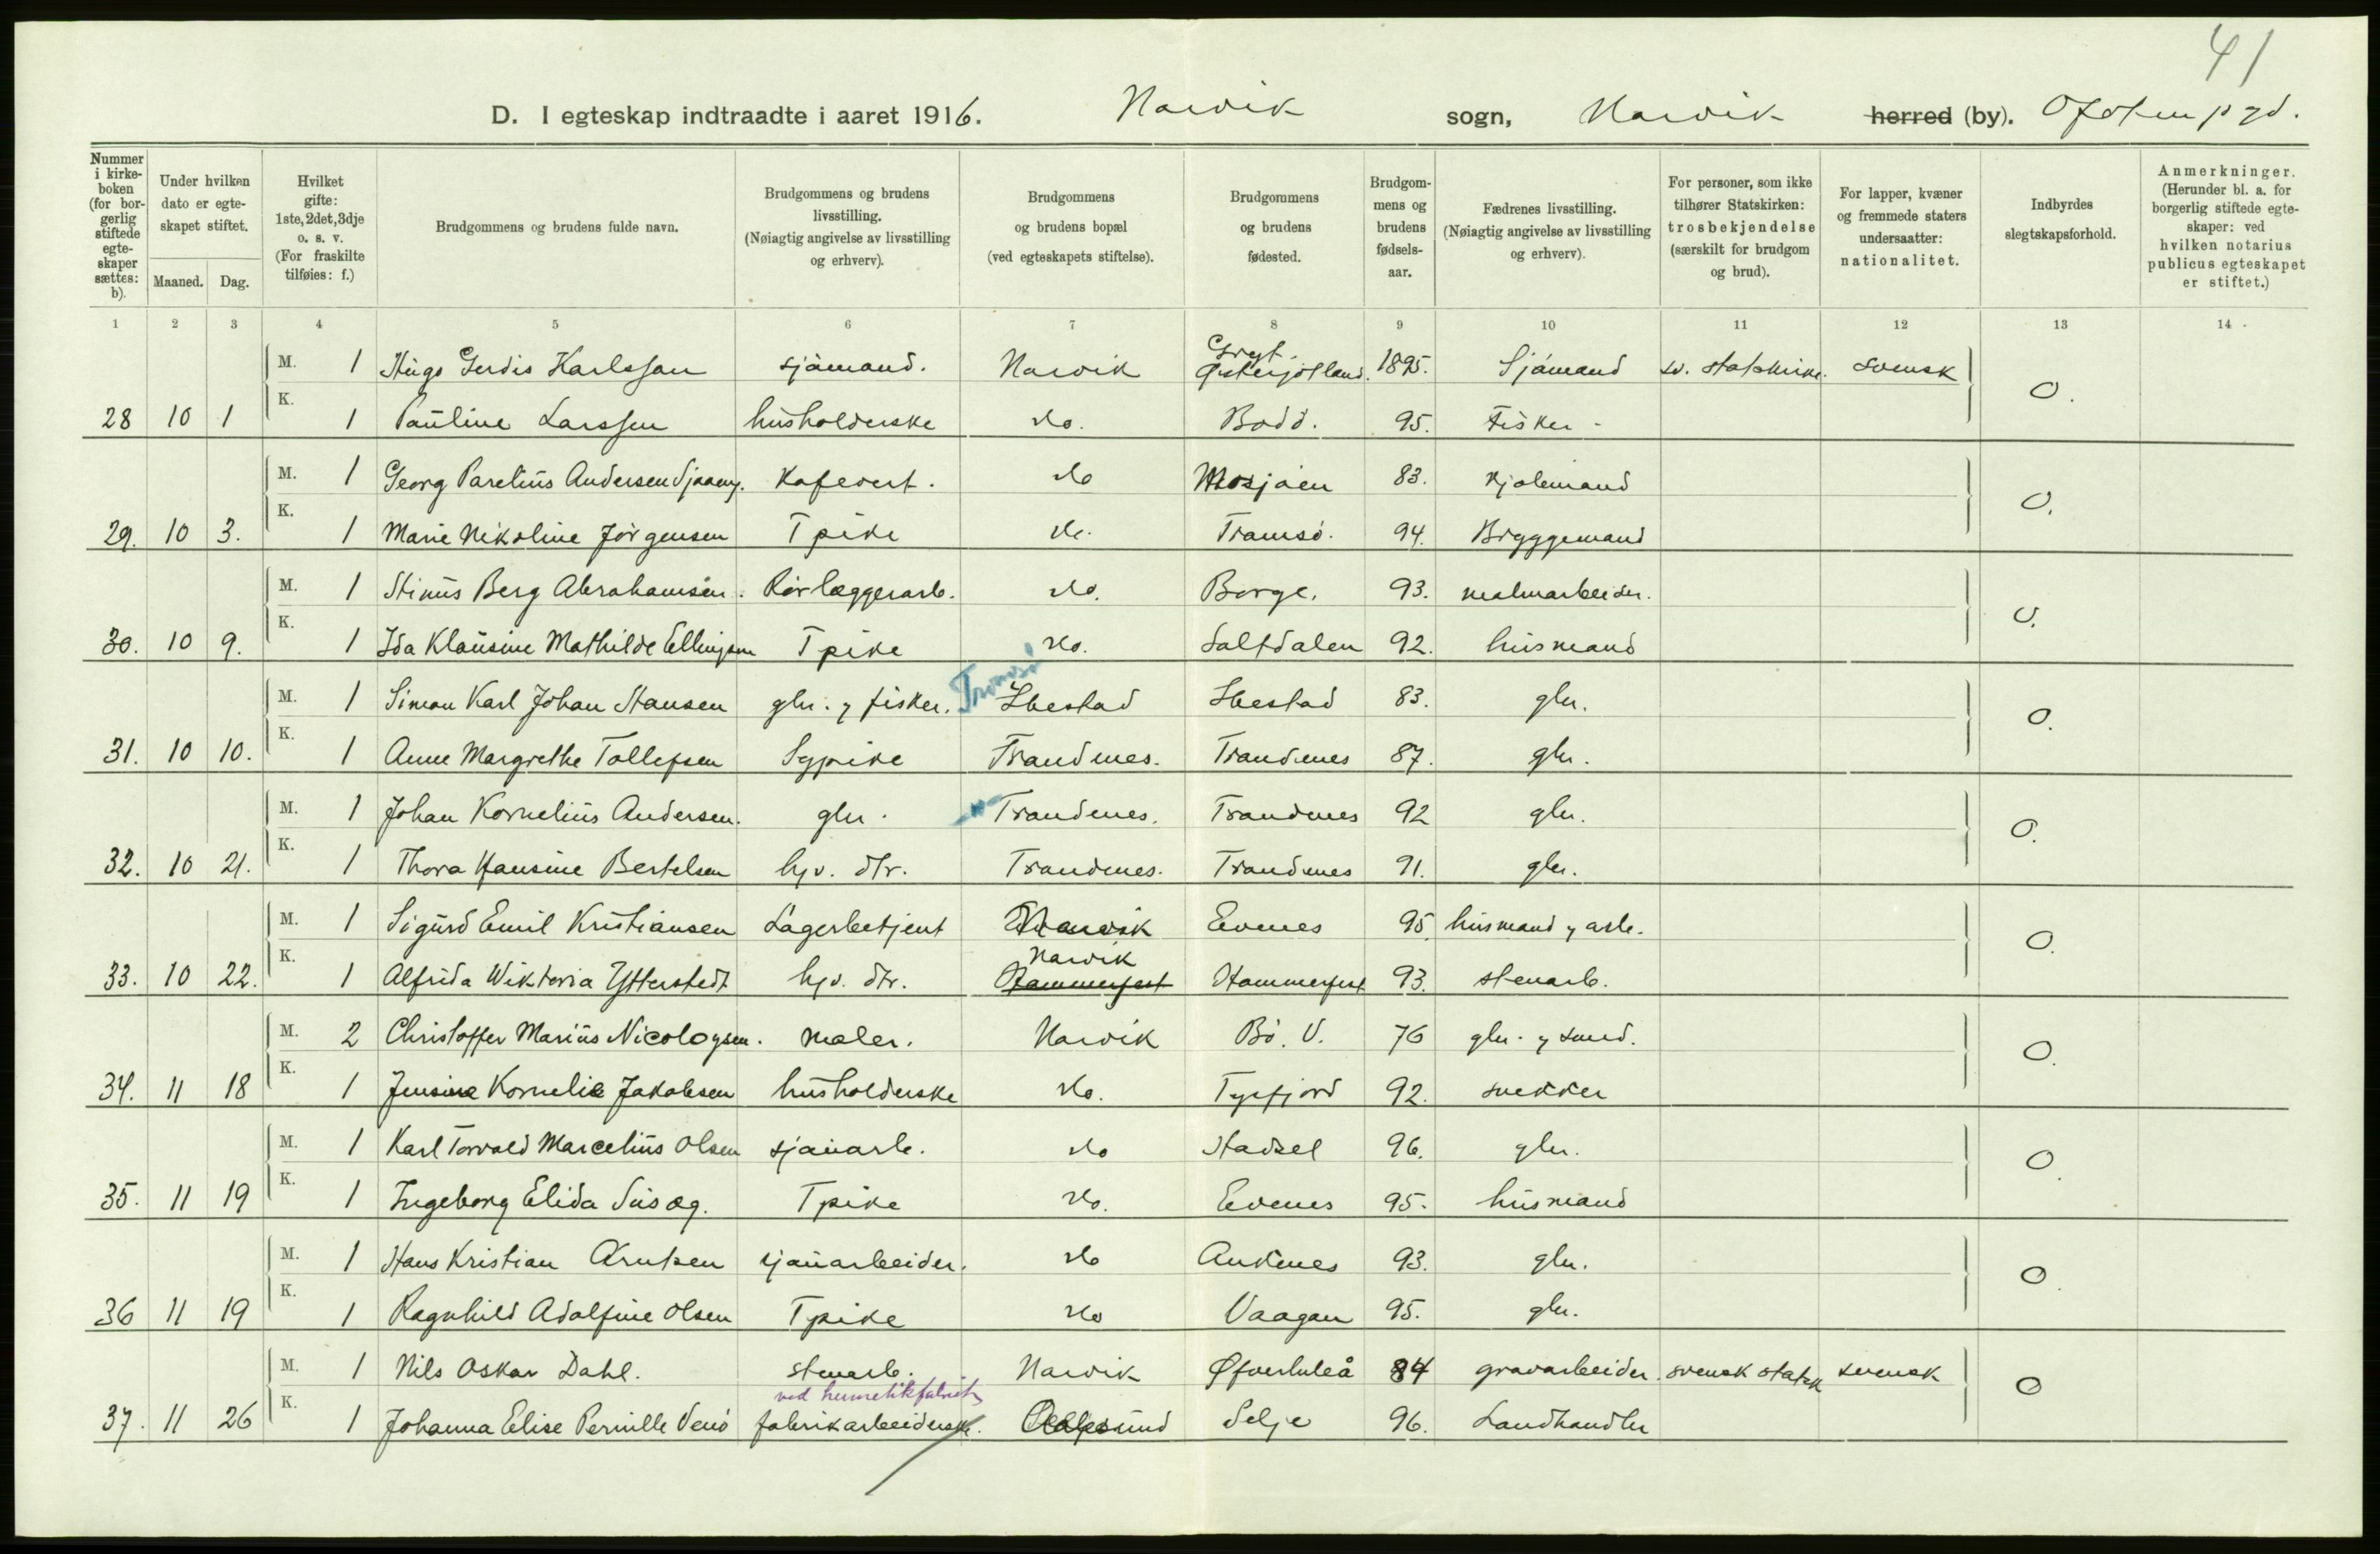 41
D. I egteskap indtraadte i aaret 1916. Narvik sogn, Narvik herred (by). Ofoten pgd.
Nummer i kirkeboken (for borgerlig stiftede egteskaper sættes: b). Under hvilken dato er egteskapet stiftet. Maaned. Dag. Hvilket gifte: 1ste, 2det, 3dje o. s. v. (For fraskilte tilføies: f.) Brudgommens og brudens fulde navn. Brudgommens og brudens livsstilling. (Nøiagtig angivelse av livsstilling og erhverv). Brudgommens og brudens bopæl (ved egteskapets stiftelse). Brudgommens og brudens fødested. Brudgommens og brudens fødselsaar. Fædrenes livsstilling. (Nøiagtig angivelse av livsstilling og erhverv). For personer, som ikke tilhører Statskirken: trosbekjendelse (særskilt for brudgom og brud). For lapper, kvæner og fremmede staters undersaatter: nationalitet. Indbyrdes slegtskapsforhold. Anmerkninger. (Herunder bl. a. for borgerlig stiftede egteskaper: ved hvilken notarius publicus egteskapet er stiftet.)
1 2 3 4 5 6 7 8 9 10 11 12 13 14
M. 1 Hugo Gerdis Karlsson sjømand. Narvik Østergötland. 1895. Sjømand sv. statskirke. svensk 0.
28 10 1 K. 1 Pauline Larssen husholderske do. Bodø. 95. Fisker
M. 1 Georg Parelius Andersen Kafevert. do Mosjøen 83. 0.
29. 10 3. K. 1 Marie Nikoline Jørgensen Tpike do. Tromsø. 94. Bryggemand
M. 1 Stinius Berg Abrahamsen. Rørlæggerarb. do. Borge. 93. malmarbeider. 0.
30. 10 9. K. 1 Ida Klausine Mathilde Ellingsen Tpike do. Saltdalen 92. husmand
Tromsø
M. 1 Simon Karl Johan Hansen gbr. og fisker. Ibestad Ibestad 83. gbr. 0.
31. 10 10. K. 1 Anne Margrethe Tollefsen Sypike Trandenes. Trandenes 87. gbr.
M. 1 Johan Kornelius Andersen. gbr. Trandenes. Trandenes 92 gbr. 0.
32. 10 21. K. 1 Thora Hansine Bertelsen hjv. dtr. Trandenes. Trandenes 91. gbr.
M. 1 Sigurd Emil Kristiansen Lagerbetjent Narvik Evenes 95. husmand og arb. 0.
Narvik
33. 10 22. K. 1 Alfrida Wiktoria Ytterstedt hjv. dtr. Hammerfest Hammerfest 93. stenarb.
M. 2 Christoffer Marius Nicolaysen. maler. Narvik Bø. V. 76 gbr. og smed. 0.
34. 11 18 K. 1 Jensine Kornelie Jakobsen husholderske do. Tysfjord 92. snekker
M. 1 Karl Torvald Marcelius Olsen sjauarb. do Hadsel 96. gbr. 0.
35. 11 19 K. 1 Ingeborg Elida Tpike do. Evenes 95. husmand
M. 1 Hans Kristian Arntzen sjauarbeider. do Ankenes 93. gbr. 0.
36 11 19 K. 1 Ragnhild Adolfine Olsen Tpike do Vaagan 95. gbr.
M. 1 Nils Oskar Dahl. stenarb. Narvik Øfverluleå 84 gravarbeider. svensk statsk svensk 0
ved hermetikfabrik
37. 11 26 K. 1 Johanna Elise Pernille fabrikarbeiderske. Aalesund Selje 96. Landhandler